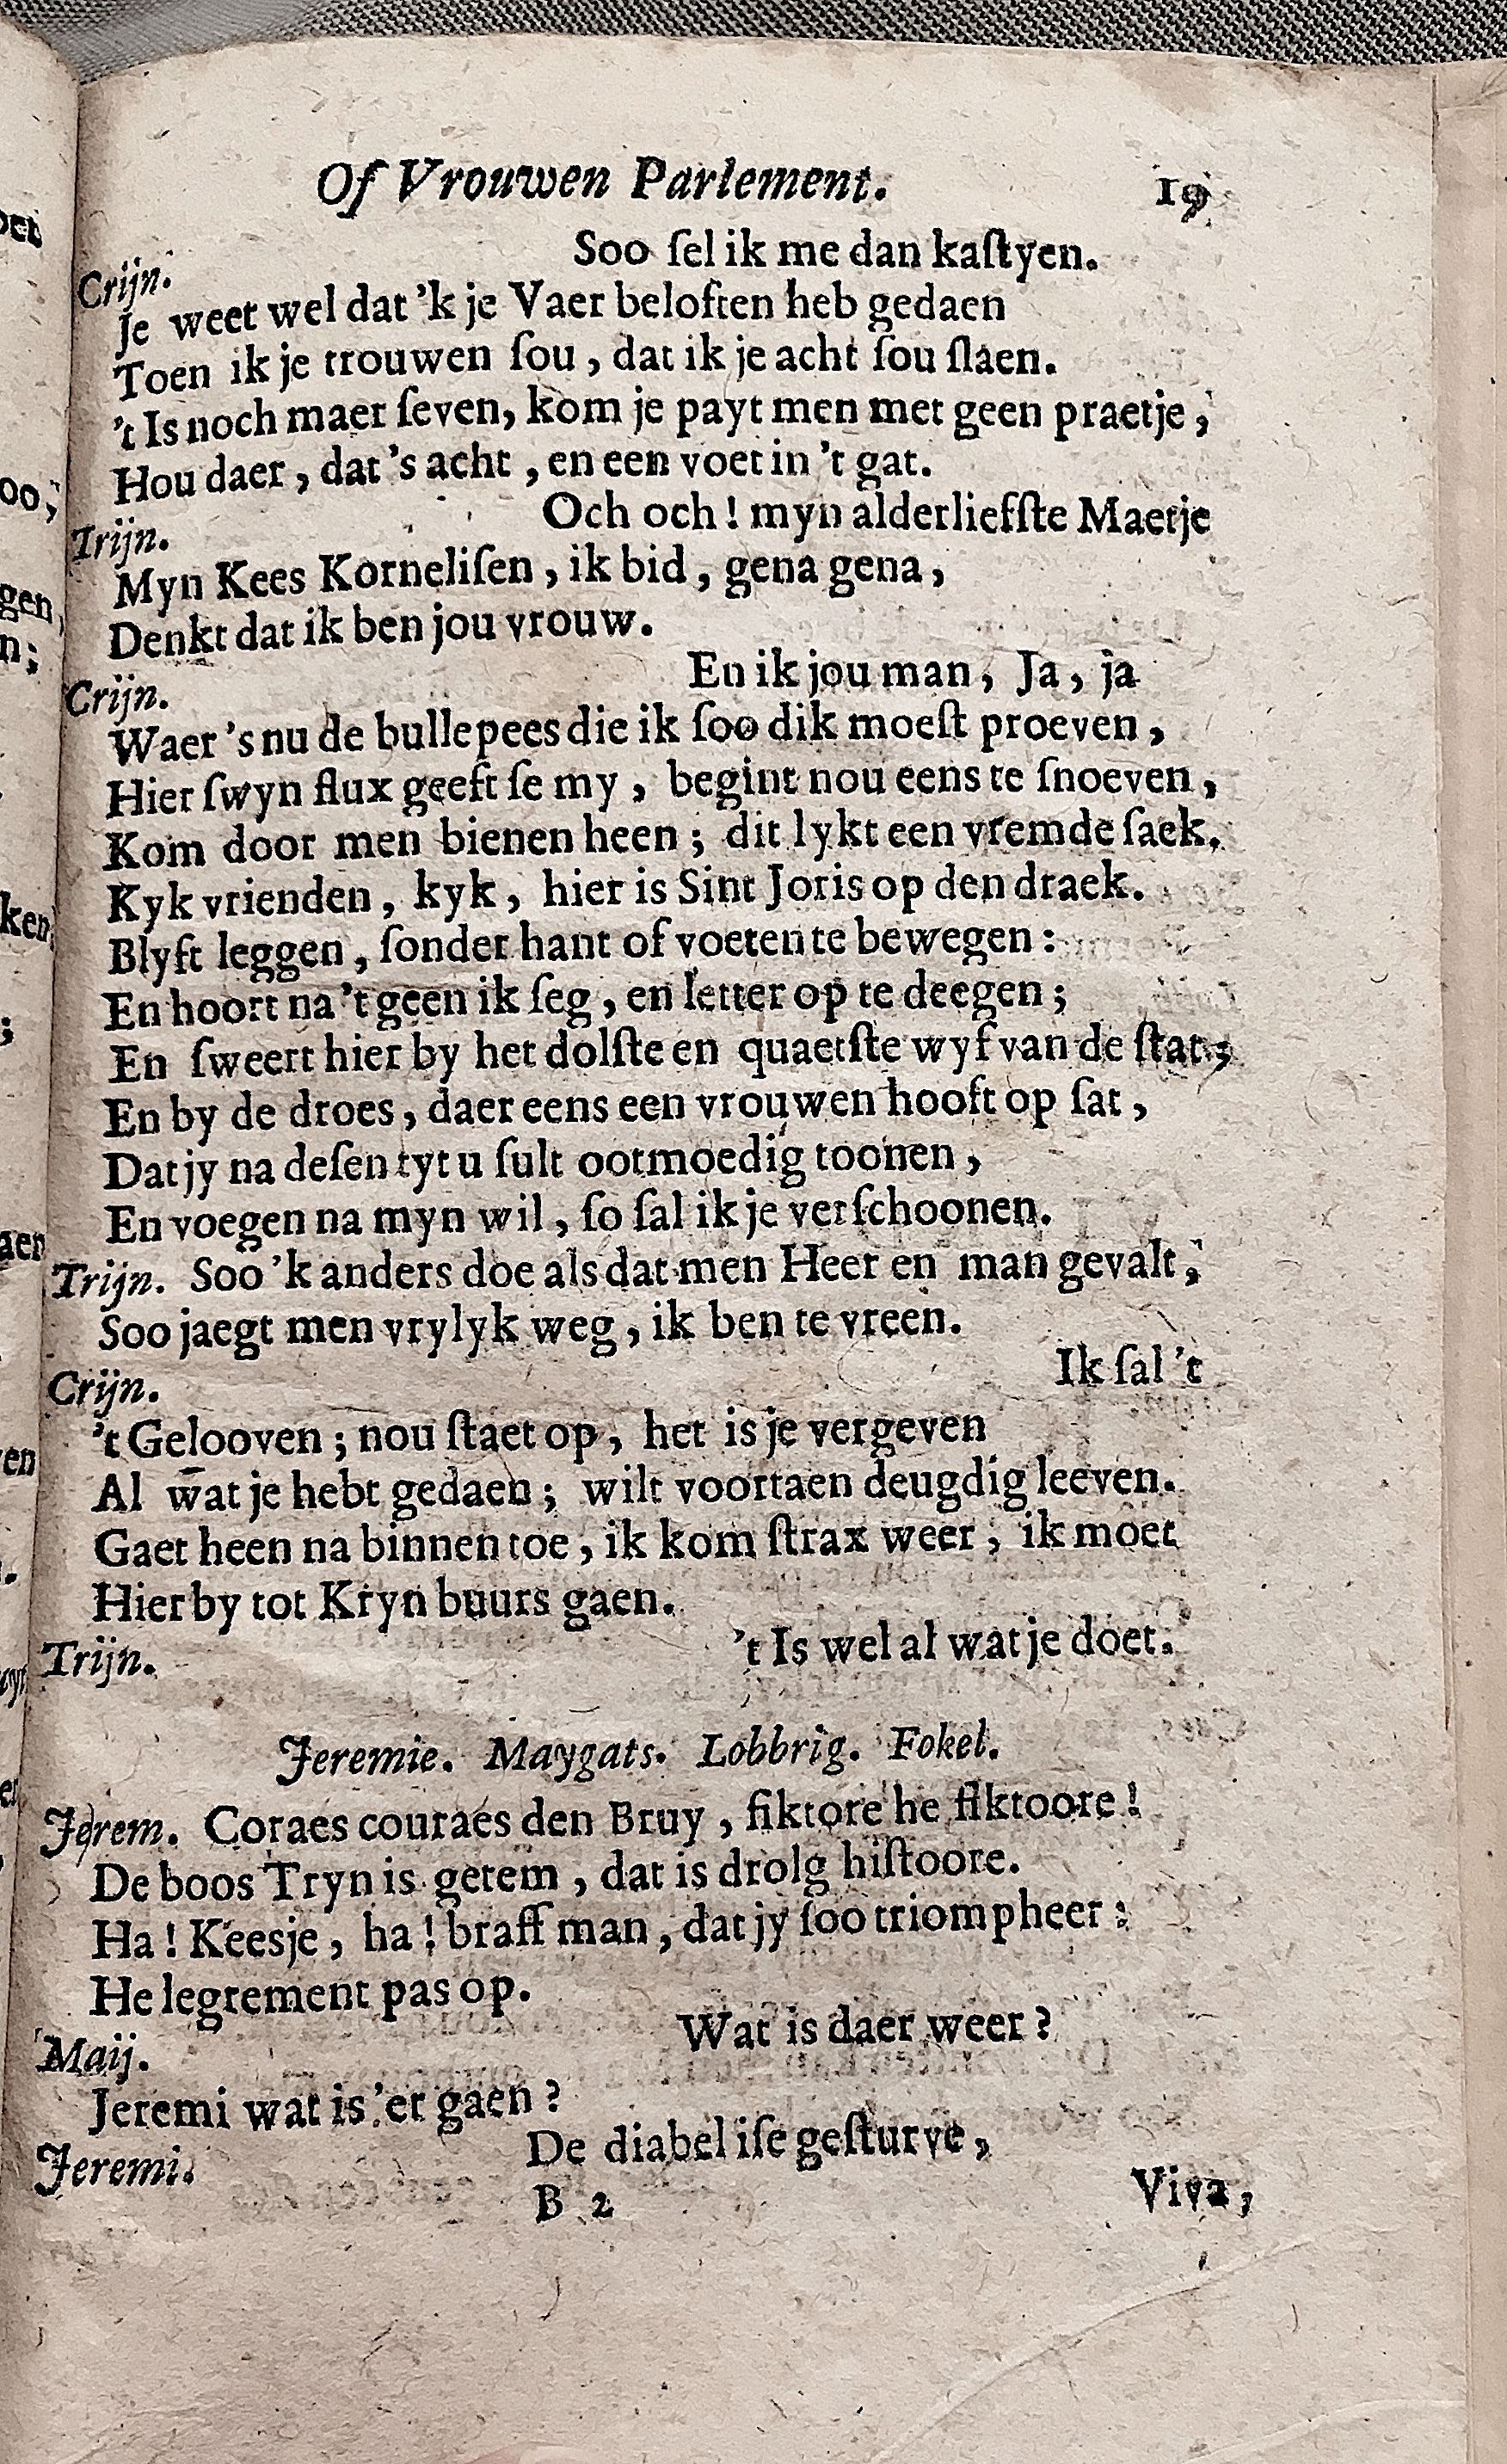 Of Vrouwen Parlement. 19
Crijn. Soo ſel ik me dan kaſtyen.
Je weet wel dat 'k je Vaer beloften heb gedaen
Toen ik je trouwen ſou, dat ik je acht ſou ſlaen.
't Is noch maer ſeven, kom je payt men met geen praetje,
Hou daer, dat 's acht, en een voet in 't gat.
Trijn. Och och! myn alderliefſte Maetje
Myn Kees Korneliſen, ik bid, gena gena,
Denkt dat ik ben jou vrouw.
Crijn. En ik jou man, Ja, ja
Waer 's nu de bullepees die ik ſoo dik moeſt proeven,
Hier ſwyn flux geeft ſe my, begint nou eens te ſnoeven,
Kom door men bienen heen; dit lykt een vremde ſaek.
Kyk vrienden, kyk, hier is Sint Joris op den draek.
Blyft leggen, ſonder hant of voeten te bewegen:
En hoort na 't geen ik ſeg, en letter op te deegen;
En ſweert hier by het dolſte en quaetſte wyf van de ſtat,
En by de droes, daer eens een vrouwen hooft op ſat,
Dat jy na deſen tyt u ſult ootmoedig toonen,
En voegen na myn wil, ſo ſal ik je verſchoonen.
Trijn. Soo 'k anders doe als dat men Heer en man gevalt,
Soo jaegt men vrylyk weg, ik ben te vreen.
Crijn. Ik ſal 't
't Gelooven; nou ſtaet op, het is je vergeven
Al wat je hebt gedaen; wilt voortaen deugdig leeven.
Gaet heen na binnen toe, ik kom ſtrax weer, ik moet
Hier by tot Kryn buurs gaen.
Trijn. 't Is wel al wat je doet.
Jeremie. Maygats. Lobbrig. Fokel.
Jerem. Coraes couraes den Bruy, fiktore he fiktoore!
De boos Tryn is getem, dat is drolg hiſtoore.
Ha! Keesje, ha! braff man, dat jy ſoo triompheer:
He legrement pas op.
Maij. Wat is daer weer?
Jeremi wat is 'er gaen?
Jeremi. De diabel iſe geſturve,
B 2 Viva,